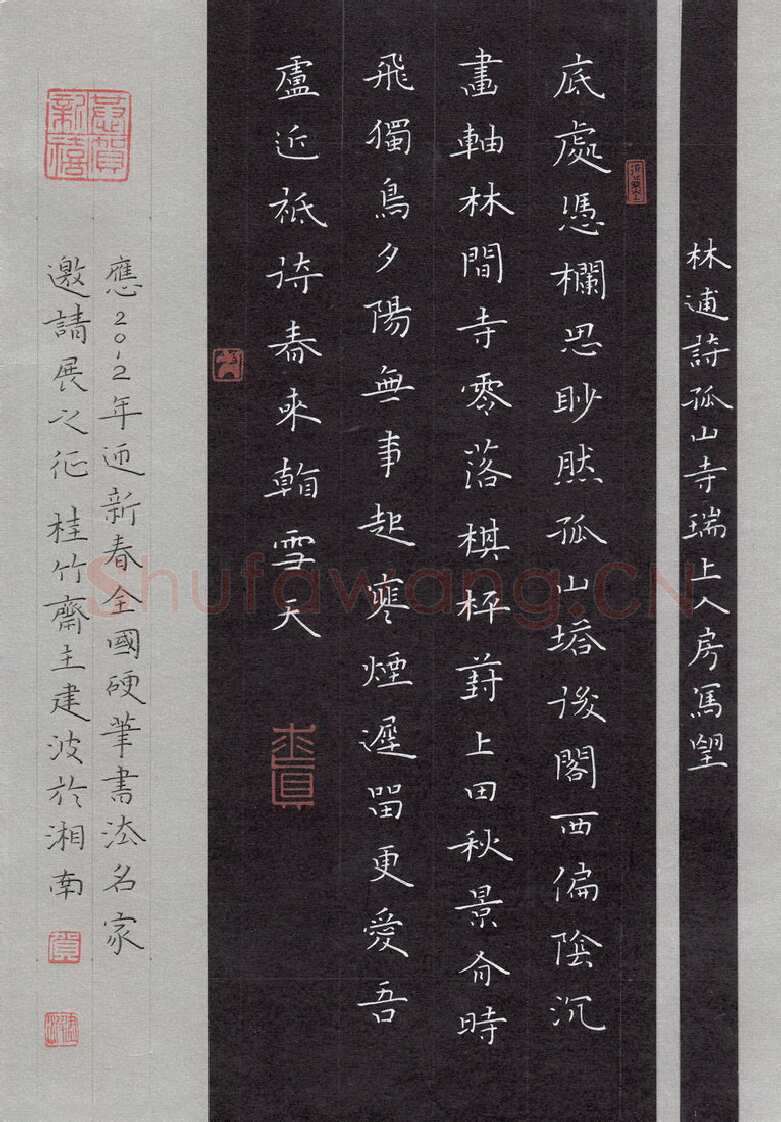 林逋詩孤山寺瑞上人房寫望
底處憑欄思眇然孤山塔後閣西偏陰沉
畫軸林間寺零落棋枰葑上田秋景有時
飛獨鳥夕陽無事起寒煙遲留更愛吾
盧近祗待春來看雪天
應2012年迎新春全國硬筆書法名家
邀請展之征 桂竹齋主建波於湘南
恭賀新禧
賀
Shufawang.CN